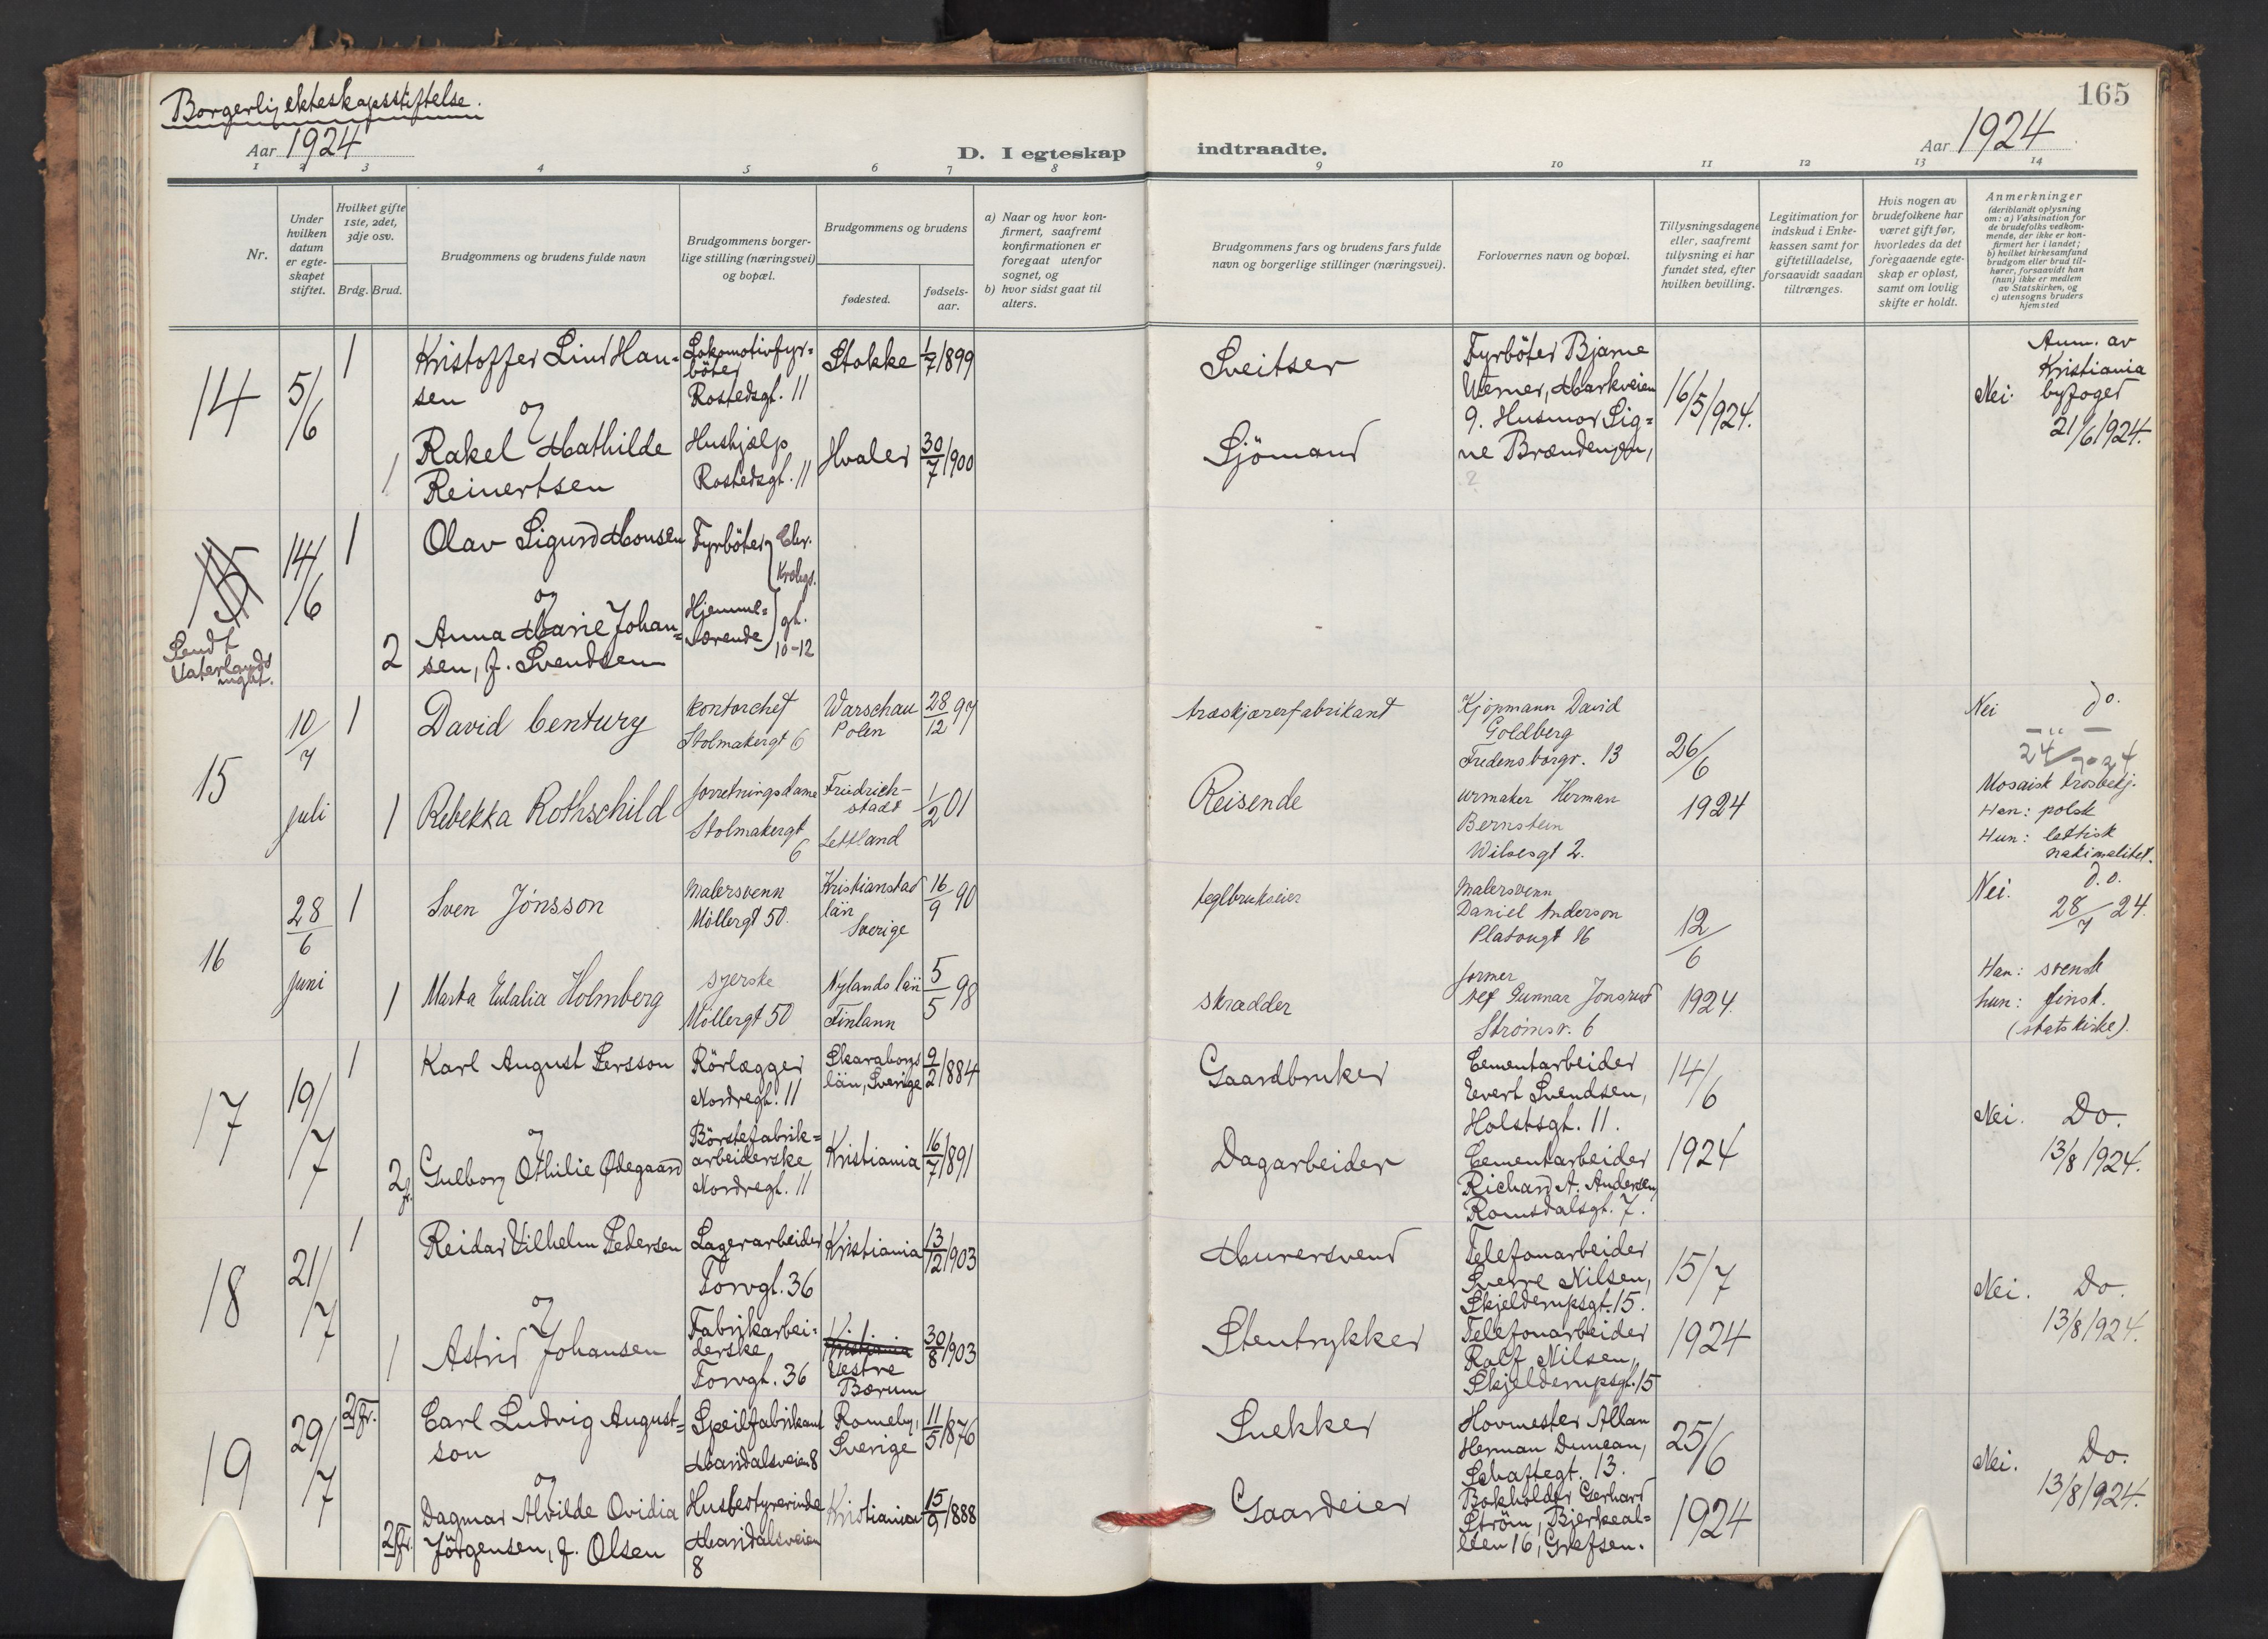 Borgerlig ekteskapsstiftelse.
165
Aar 1924
D. I egteskap indtraadte.
Aar 1924
1 2 3 4 5 6 7 8 9 10 11 12 13 14
Nr.
Under hvilken datum er egteskapet stiftet.
Hvilket gifte 1ste, 2det, 3dje osv.
Brdg. Brud.
Brudgommens og brudens fulde navn
Brudgommens borgerlige stilling (næringsvei) og bopæl.
Brudgommens og brudens
fødested.
fødselsaar.
a) Naar og hvor konfirmert, saafremt konfirmationen er foregaat utenfor sognet, og
b) hvor sidst gaat til alters.
Brudgommens fars og brudens fars fulde navn og borgerlige stillinger (næringsvei).
Forlovernes navn og bopæl.
Tillysningsdagene eller, saafremt tillysning ei har fundet sted, efter hvilken bevilling.
Legitimation for indskud i Enkekassen samt for giftetilladelse, forsaavidt saadan tiltrænges.
Hvis nogen av brudefolkene har været gift før, hvorledes da det foregaaende egteskap er opløst, samt om lovlig skifte er holdt.
Anmerkninger
(deriblandt oplysning om: a) Vaksination for de brudefolks vedkommende, der ikke er konfirmert her i landet;
b) hvilket kirkesamfund brudgom eller brud tilhører, forsaavidt han (hun) ikke er medlem av Statskirken, og
c) utensogns bruders hjemsted
14
5/6
1
Kristoffer Lind Hansen
og
Lokomotivfyrböter
Rostedsgt. 11
Stokke
1/7 1899
Sveitser
Fyrböter Bjarne
Werner, Markveien
9. Husmor Sig=
ne Brændengen,
?
16/5 1924.
Nei.
Anm. av
Kristiania
byfoged
21/6 1924.
1
Rakel Mathilde
Reinertsen
Hushjælp
Rostedsgt. 11
Hvaler
30/7 1900
Sjömand
15
Sendt
Vaterlands
mght.
14/6
1
Olav Sigurd Monsen
og
Fyrböter
Chr.
Krohgs.
gt.
10-12
2
Anna Marie Johan=
sen, f. Svendsen
Hjemme=
værende
15
10/7
juli
1
David Century
kontorchef
Stolmakergt 6
Warschau
Polen
28/12 97
træskjærerfabrikant
Kjøpmann David
Goldberg
Fredensborgv. 13
26/6
1924
Nei
do.
24/7 24
1
Rebekka Rothschild
forretningsdame
Stolmakergt
6
Friedrich-
stadt
Lettland
1/2 01
Reisende
urmaker Herman
Bernstein
Wilsesgt 2.
Mosaisk trosbekj.
Han: polsk
Hun: lettisk
nasjonalitet.
16
28/6
juni
1
Sven Jönsson
Malersvenn
Möllergt 50.
Kristianstad
län
Sverige
16/9 90
teglbrukseier
Malersvenn
Daniel Anderson
Platougt 16
12/6
1924.
Nei.
d.o.
28/7 24.
1
Marta Eulalia Holmberg
syerske
Möllergt 50
Nylands län
Finlann
5/5 98
skrædder
former
Gunnar Jonsrud
Strömsv. 6
Han: svensk
hun: finsk.
(statskirke).
17
19/7
1
Karl August Persson
og
Rörlægger
Nordregt. 11
Skaraborgs
län, Sverige
9/2 1884
Gaardbruker
Cementarbeider
Evert Svendsen,
Holstsgt. 11.
14/6
1924
Nei.
Do.
13/8 1924.
2 f.
Gulborg Othilie Ødegaard
Börstefabrik=
arbeiderske
Nordregt. 11
Kristiania
16/7 1891
Dagarbeider
Cementarbeider
Richard A. Andersen,
Romsdalsgt. 7.
18
21/7
1
Reidar Vilhelm Pedersen
og
Lagerarbeider
Torvgt. 36
Kristiania
13/12 1903
Murersvend
Telefonarbeider
Sverre Nilsen,
Skjelderupsgt. 15.
15/7
1924
Nei.
Do.
13/8 1924.
1
Astrid Johansen
Fabrikarbei=
derske
Torvgt. 36
Kristiania
Vestre
Bærum
30/8 1903
Stentrykker
Telefonarbeider
Rolf Nilsen,
Skjelderupsgt. 15
19
29/7
2 fr.
Carl Ludvig August=
son
og
Speilfabrikant
Maridalsveien 8
Romeby,
Sverige
11/5 1876
Snekker
Hovmester Allan
Herman Duncan,
Schaftegt. 13.
25/6
1924
Nei.
Do.
13/8 1924.
2 fr.
Dagmar Alvilde Ovidia
Jörgensen, f. Olsen
Husbestyrerinde
Maridalsveien
8
Kristiania
15/9 1888
Gaardeier
Bokholder Gerhard
Ström, Bjerkeal=
leen 16, Grefsen.